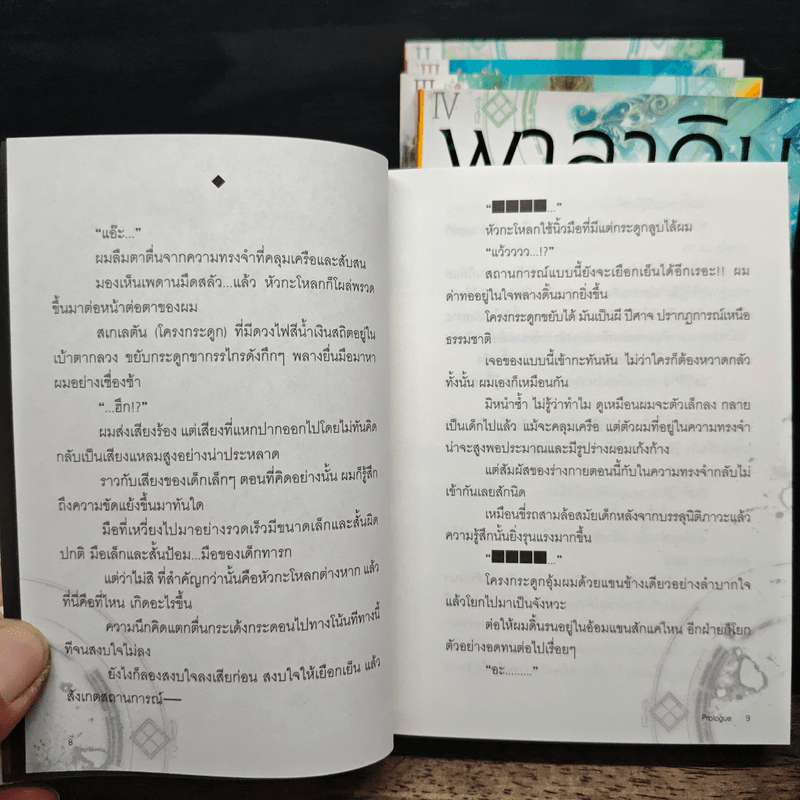 II
III
IV
พาลาดิน
◆
“แอ๊ะ...”
ผมลืมตาตื่นจากความทรงจำที่คลุมเครือและสับสน
มองเห็นเพดานมืดสลัว...แล้ว หัวกะโหลกก็โผล่พรวด
ขึ้นมาต่อหน้าต่อตาของผม
สเกเลตัน (โครงกระดูก) ที่มีดวงไฟสีน้ำเงินสถิตอยู่ใน
เบ้าตากลวง ขยับกระดูกขากรรไกรดังกึกๆ พลางยื่นมือมาหา
ผมอย่างเชื่องช้า
“...ฮึก!?”
ผมส่งเสียงร้อง แต่เสียงที่แหกปากออกไปโดยไม่ทันคิด
กลับเป็นเสียงแหลมสูงอย่างน่าประหลาด
ราวกับเสียงของเด็กเล็กๆ ตอนที่คิดอย่างนั้น ผมก็รู้สึก
ถึงความขัดแย้งขึ้นมาทันใด
มือที่เหวี่ยงไปมาอย่างรวดเร็วมีขนาดเล็กและสั้นผิด
ปกติ มือเล็กและสั้นป้อม...มือของเด็กทารก
แต่ว่าไม่สิ ที่สำคัญกว่านั้นคือหัวกะโหลกต่างหาก แล้ว
ที่นี่คือที่ไหน เกิดอะไรขึ้น
ความนึกคิดแตกตื่นกระเด้งกระดอนไปทางโน้นทีทางนี้
ทีจนสงบใจไม่ลง
ยังไงก็ลองสงบใจลงเสียก่อน สงบใจให้เยือกเย็น แล้ว
สังเกตสถานการณ์—
8
“■■■■...”
หัวกะโหลกใช้นิ้วมือที่มีแต่กระดูกลูบไล้ผม
“แว้วววว...!?”
สถานการณ์แบบนี้ยังจะเยือกเย็นได้อีกเรอะ!! ผม
ด่าทออยู่ในใจพลางดิ้นมากยิ่งขึ้น
โครงกระดูกขยับได้ มันเป็นผี ปีศาจ ปรากฏการณ์เหนือ
ธรรมชาติ
เจอของแบบนี้เข้ากะทันหัน ไม่ว่าใครก็ต้องหวาดกลัว
ทั้งนั้น ผมเองก็เหมือนกัน
มิหนำซ้ำ ไม่รู้ว่าทำไม ดูเหมือนผมจะตัวเล็กลง กลาย
เป็นเด็กไปแล้ว แม้จะคลุมเครือ แต่ตัวผมที่อยู่ในความทรงจำ
น่าจะสูงพอประมาณและมีรูปร่างผอมเก้งก้าง
แต่สัมผัสของร่างกายตอนนี้กับในความทรงจำกลับไม่
เข้ากันเลยสักนิด
เหมือนขี่รถสามล้อสมัยเด็กหลังจากบรรลุนิติภาวะแล้ว
ความรู้สึกนั้นยิ่งรุนแรงมากขึ้น
“■■■■...”
โครงกระดูกอุ้มผมด้วยแขนข้างเดียวอย่างลำบากใจ
แล้วโยกไปมาเป็นจังหวะ
ต่อให้ผมดิ้นรนอยู่ในอ้อมแขนสักแค่ไหน อีกฝ่ายก็โยก
ตัวอย่างอดทนต่อไปเรื่อยๆ
“อะ.........”
Prologue 9